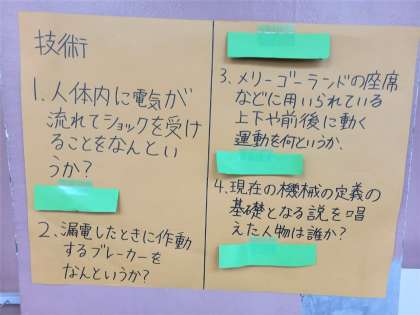 技術
1. 人体内に電気が
流れてショックを受け
ることをなんとい
うか?
2. 漏電したときに作動
するブレーカーを
なんというか?
3. メリーゴーランドの座席
などに用いられている
上下や前後に動く
運動を何というか。
4. 現在の機械の定義の
基礎となる説を唱
えた人物は誰か?